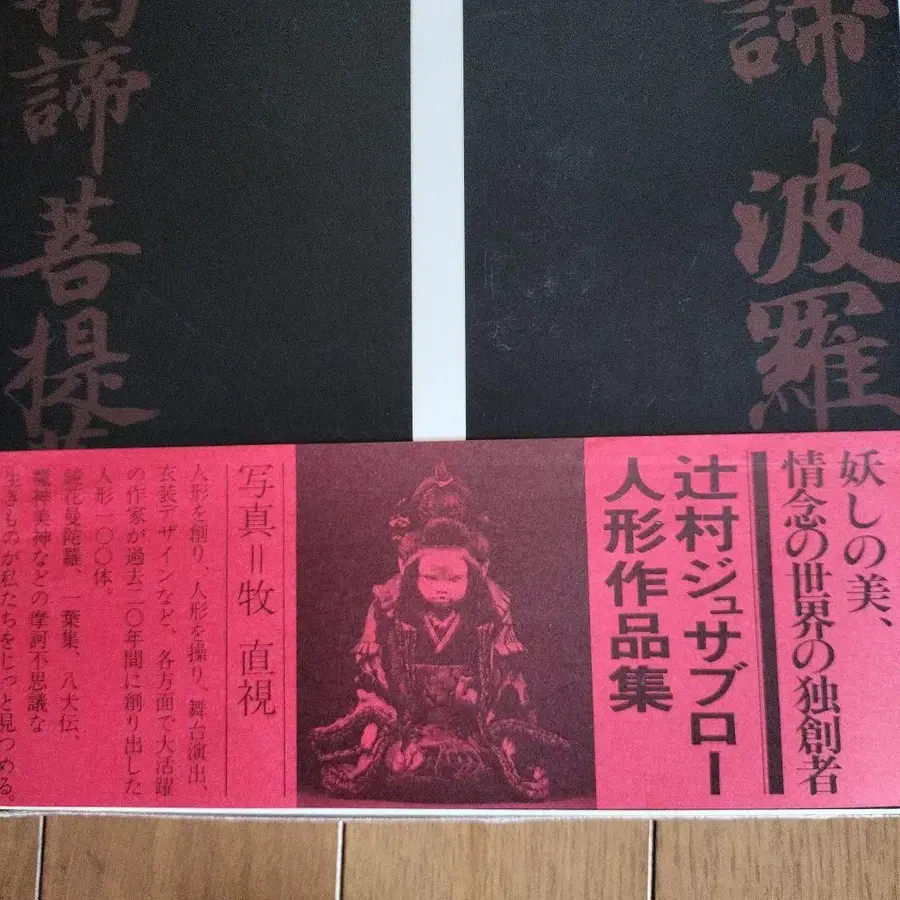 諦波羅
羯諦菩提
妖しの美、
情念の世界の独創者
辻村ジュサブロー
人形作品集
写真＝牧 直視
人形を創り、人形を操り、舞台演出、
衣装デザインなど、各方面で大活躍
の作家が過去二〇年間に創り出した
人形一〇〇体。
鏡花曼陀羅、一葉集、八犬伝、
魔神美神などの摩訶不思議な
生きものが私たちをじっと見つめる。